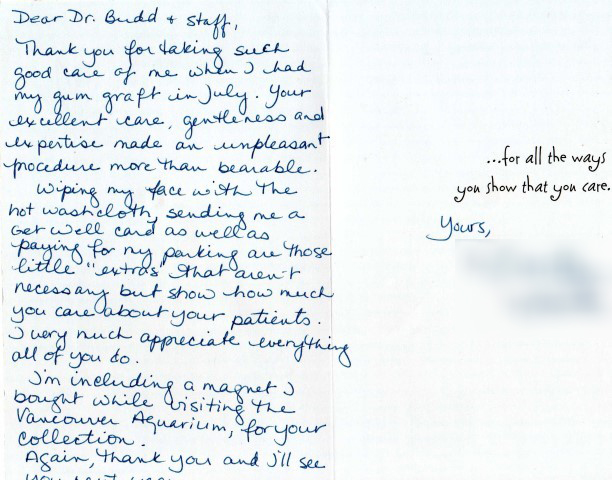 Dear Dr. Budd + staff,
Thank you for taking such
good care of me when I had
my gum graft in July. Your
excellent care, gentleness and
expertise made an unpleasant
procedure more than bearable.
Wiping my face with the
hot washcloth, sending me a
Get Well card as well as
paying for my parking are those
little "extras" that aren't
necessary but show how much
you care about your patients.
I very much appreciate everything
all of you do.
I'm including a magnet I
bought while visiting the
Vancouver Aquarium, for your
collection.
Again, thank you and I'll see
...for all the ways
you show that you care.
Yours,